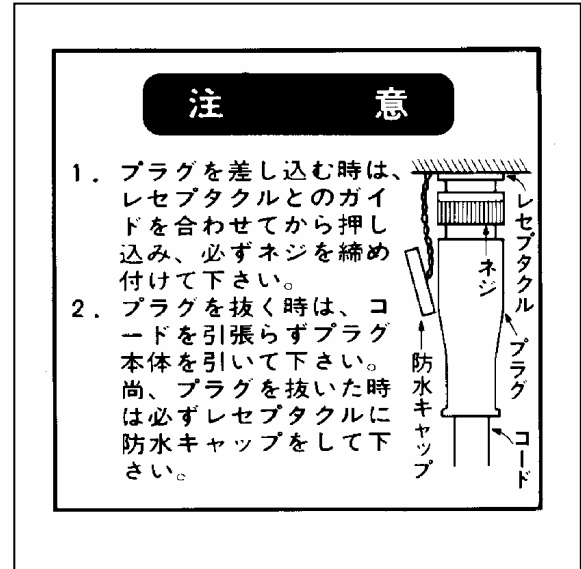 注 意
1. プラグを差し込む時は、
レセプタクルとのガイ
ドを合わせてから押し
込み、必ずネジを締め
付けて下さい。
2. プラグを抜く時は、コ
ードを引張らずプラグ
本体を引いて下さい。
尚、プラグを抜いた時
は必ずレセプタクルに
防水キャップをして下
さい。
レセプタクル
ネジ
プラグ
防水キャップ
コード